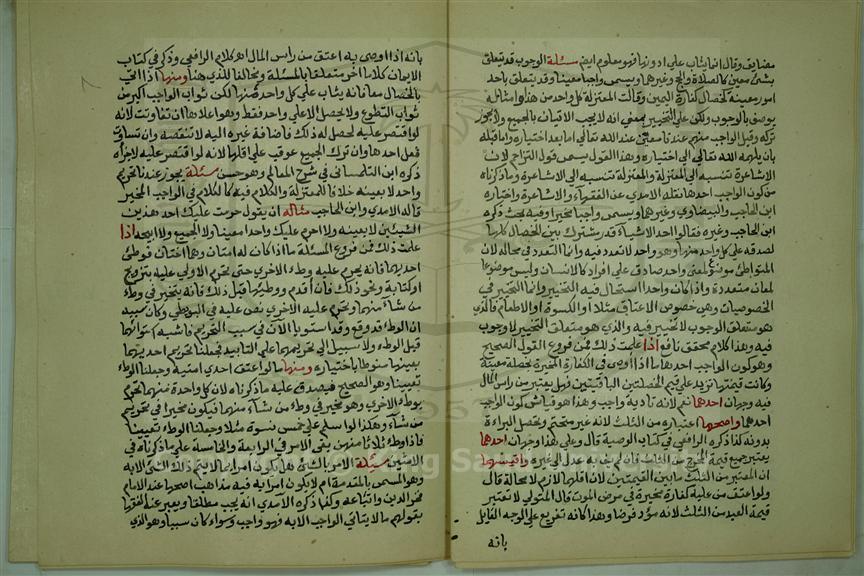 مضايف وقال انما يثاب على ادونها فهو معلوم ايضا مسئلة الوجوب قد يتعلق
بشئ معين كالصلاة والحج وغيرهما ويسمى واجبا معينا وقد يتعلق باحد
امور معينه كخصال كفارة اليمين وقالت المعتزلة كل واحد من هذه وامثاله
يوصف بالوجوب ولكن على التخيير بمعنى انه لا يجب الاتيان بالجميع ولا يجوز
تركه وقيل الواجب منهم عندنا معين عند الله تعالى اما بعد اختياره واما قبله
بان يلهمه الله تعالى الى اختياره وهذا القول يسمى قول التراجم لان
الاشاعرة تنسبه الى المعتزلة والمعتزلة تنسبه الى الاشاعرة وما ذكرناه
من كون الواجب احدها نقله الامدي عن الفقهاء والاشاعرة واختاره
ابن الحاجب والبيضاوي وغيرهما ويسمى واجبا مخيرا وفيه بحث ذكره
ابن الحاجب وغيره فقالوا احد الاشياء قدر مشترك بين الخصال كلها
لصدقه على كل واحد منها وهو واحد لا تعدد فيه وانما التعدد في محاله لان
المتواطئ موضوع لمعنى واحد صادق على افراد كالانسان وليس موضوعا
لمعان متعددة واذا كان واحدا استحال فيه التخيير وانما التخيير في
الخصوصيات وهي خصوص الاعتاق مثلا او الكسوة او الاطعام فالذي
هو متعلق الوجوب لا تخيير فيه والذي هو متعلق التخيير لا وجوب
فيه وهذا كلام محقق نافع اذا علمت ذلك فمن فروع القول الصحيح
وهو كون الواجب احدها ما اذا اوصى في الكفارة المخيرة بخصلة معينة
وكانت قيمتها تزيد على قيم الخصلتين الباقيتين فهل يعتبر من راس المال
فيه وجهان احدهما نعم لانه تادية واجب وهذا هو قياس كون الواجب
احدها واصحهما اعتباره من الثلث لانه غير متحتم وتحصل البراءة
بدونه كذا ذكره الرافعي في كتاب الوصية قال وعلى هذا وجهان احدهما
يعتبر جميع قيمة المخرج من الثلث فان لم يف به عدل الى غيره واقيسهما
ان المعتبر من الثلث ما بين القيمتين لان اقلها لازم لا محالة قال
ولو اعتق من عليه كفارة مخيرة في مرض الموت قال المتولي لا تعتبر
قيمة العبد من الثلث لانه مؤد فرضا وهذا كانه تفريع على الوجه القايل
بانه
بانه اذا اوصى به اعتق من راس المال اهـ كلام الرافعي وذكر في كتاب
الايمان كلاما اخر متعلقا بالمسئلة ومخالفا للذي هنا ومنها اذا اتى
بالخصال معا فانه يثاب على كل واحد منها لكن ثواب الواجب اكبر من
ثواب التطوع ولا يحصل الا على واحد فقط وهو اعلاها ان تفاوتت لانه
لو اقتصر عليه لحصل له ذلك فاضافة غيره اليه لا تنقصه وان تساوى
فعلى احدها وان ترك الجميع عوقب على اقلها لانه لو اقتصر عليه لاجزأه
ذكره ابن التلمساني في شرح المعالم وهو حسن مسئلة يجوز عندنا تحريم
واحد لا بعينه خلافا للمعتزلة والكلام فيه كالكلام في الواجب المخير
قاله الامدي وابن الحاجب مثاله ان يقول حرمت عليك احد هذين
الشيئين لا بعينه ولا احرم عليك واحدا معينا ولا الجميع ولا ابيحه اذا
علمت ذلك فمن فروع المسئلة ما اذا كان له امتان وهما اختان فوطئ
احديهما فانه يحرم عليه وطء الاخرى حتى تحرم الاولى عليه بتزويج
او كتابة ونحو ذلك فان اقدم ووطئها قبل ذلك فانه يتخير في وطء
من شاء منهما وتحرم عليه الاخرى نص عليه في البويطي وكان سببه
ان الوطء قد وقع وقد استويا الآن في سبب التحريم فاشبه استوائهما
قبل الوطء ولا سبيل الى تحريمهما على التابيد فجعلنا تحريم احديهما
بعينها منوطا باختياره ومنها ما لو اعتق احدى امتيه وجعلنا الوطء
تعيينا وهو الصحيح فيصدق عليه ما ذكرناه لان كل واحدة منهما تحرم
بوطء الاخرى وهو مخير في وطء من شاء منهما فيكون مخيرا في تحريم
من شاء وهكذا لو اسلم على خمس نسوة مثلا وجعلنا الوطء تعيينا
فاذا وطء ثلاثا منهن بقى الامر في الرابعة والخامسة على ما ذكرناه في
الامتين مسئلة الامر بالشئ هل يكون امرا بما لا يتم ذلك الشئ الا به
وهو المسمى بالمقدمة ام لا يكون امرا به فيه مذاهب اصحها عند الامام
فخر الدين واتباعه وكذا ذكره الامدي انه يجب مطلقا ويعبر عنه الفقها
بقولهم ما لا يتاتى الواجب الا به فهو واجب وسواء كان سببا وهو الذي